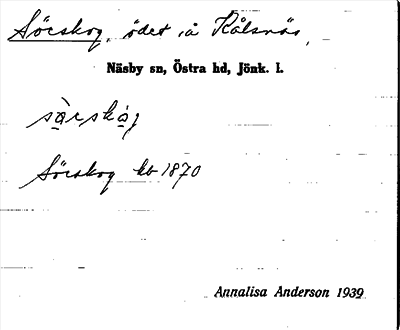 Sörskog, ödet i å Kålsnäs,
Näsby sn, Östra hd, Jönk. l.
sàrskóg
Sörskog kb 1870
Annalisa Anderson 1939